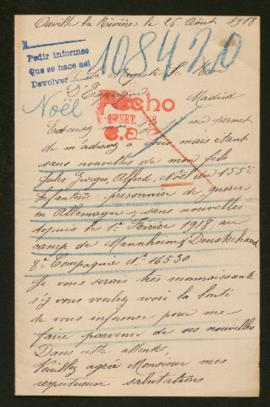 la Rivière le 26 Août 1918
Pedir informes
Que se hace así
Devolver
108420
Sa Majesté le Roi
d'Espagne Madrid
Noël
Hecho
SET. 18
me permet
de m'adresser à vous mais étant
sans nouvelles de mon fils
Jules, Georges, Alfred, Noël du 155e
Infanterie prisonnier de guerre
en Allemagne, sans nouvelles
depuis le 1er Février 1918, au
camp de Mannheim Deustschand
8e Compagnie No 16530
Je vous serais très reconnaissante
si vous voulez avoir la bonté
de vous informer pour me
faire parvenir de ses nouvelles
Dans cette attente,
Veuillez agréer Monsieur mes
respectueuses salutations